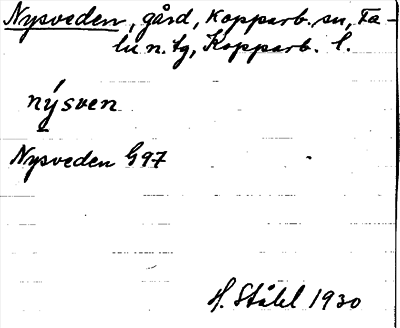 Nysveden, gård, Kopparb. sn, Fa-
lu n. tg, Kopparb. l.
nýsven
Nysveden G97
H. Ståhl 1930